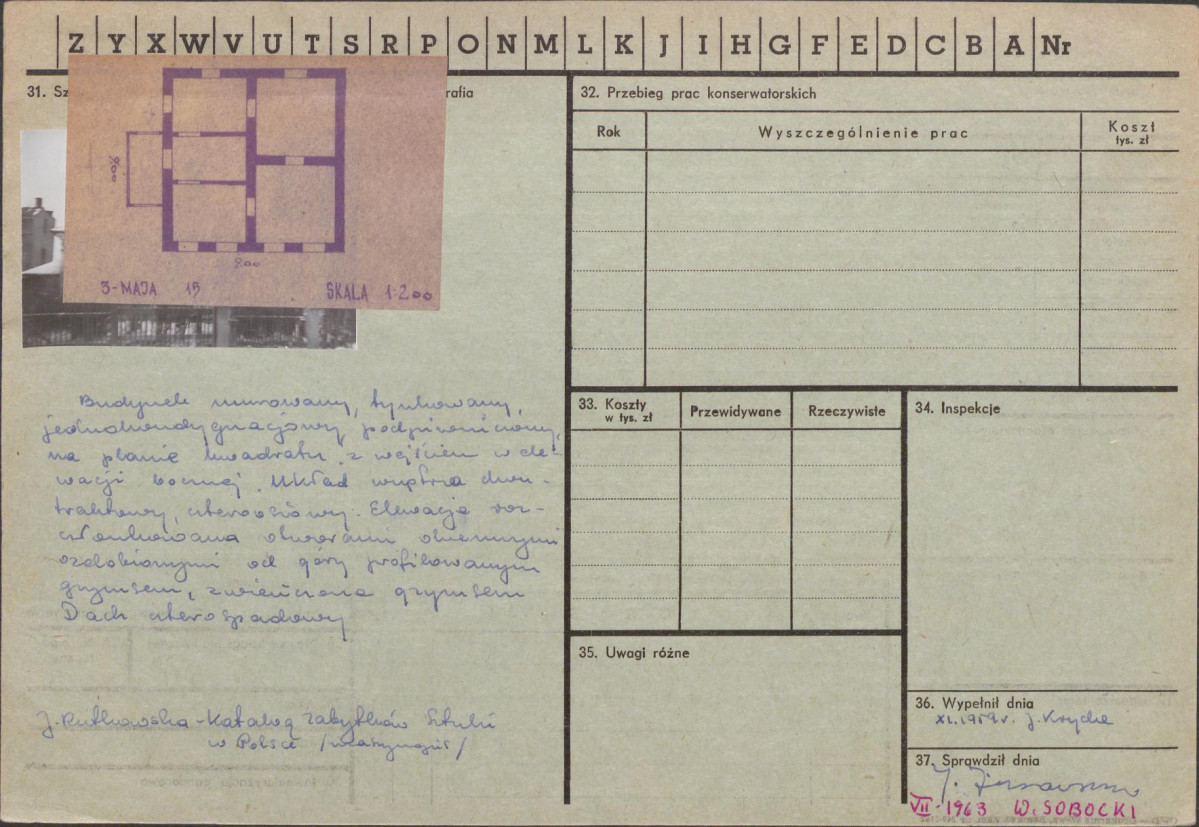 Z Y X W V U T S R P O N M L K J I H G F E D C B A Nr
31. Sz
rafia
9.00
9.00
3-MAJA 15 SKALA 1:200
Budynek murowany, tynkowany,
jednokondygnacjowy, podpiwniczony,
na planie kwadratu z wejściem w ele-
wacji bocznej. Układ wnętrza dwu-
traktowy, czteroosiowy. Elewacje roz-
członkowana otworami okiennymi
ozdobionymi od góry profilowanym
gzymsem, zwieńczona gzymsem
Dach czterospadowy
J. Rutkowska - Katalog Zabytków Sztuki
w Polsce /maszynopis/
32. Przebieg prac konserwatorskich
Rok
Wyszczególnienie prac
Koszt
tys. zł
33. Koszty
w tys. zł
Przewidywane
Rzeczywiste
34. Inspekcje
35. Uwagi różne
36. Wypełnił dnia
XI.1959r. J.
37. Sprawdził dnia
VII-1963 W. SOBOCKI